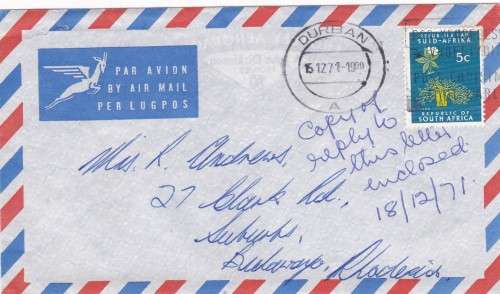 PAR AVION
BY AIR MAIL
PER LUGPOS
DURBAN
15.12.71-19
A
REPUBLIEK VAN
SUID-AFRIKA
5c
REPUBLIC OF
SOUTH AFRICA
Copy of
reply to
this letter
enclosed.
18/12/71.
Mrs. R. Andrews,
27 Clark Rd.,
Suburbs,
Bulawayo, Rhodesia.